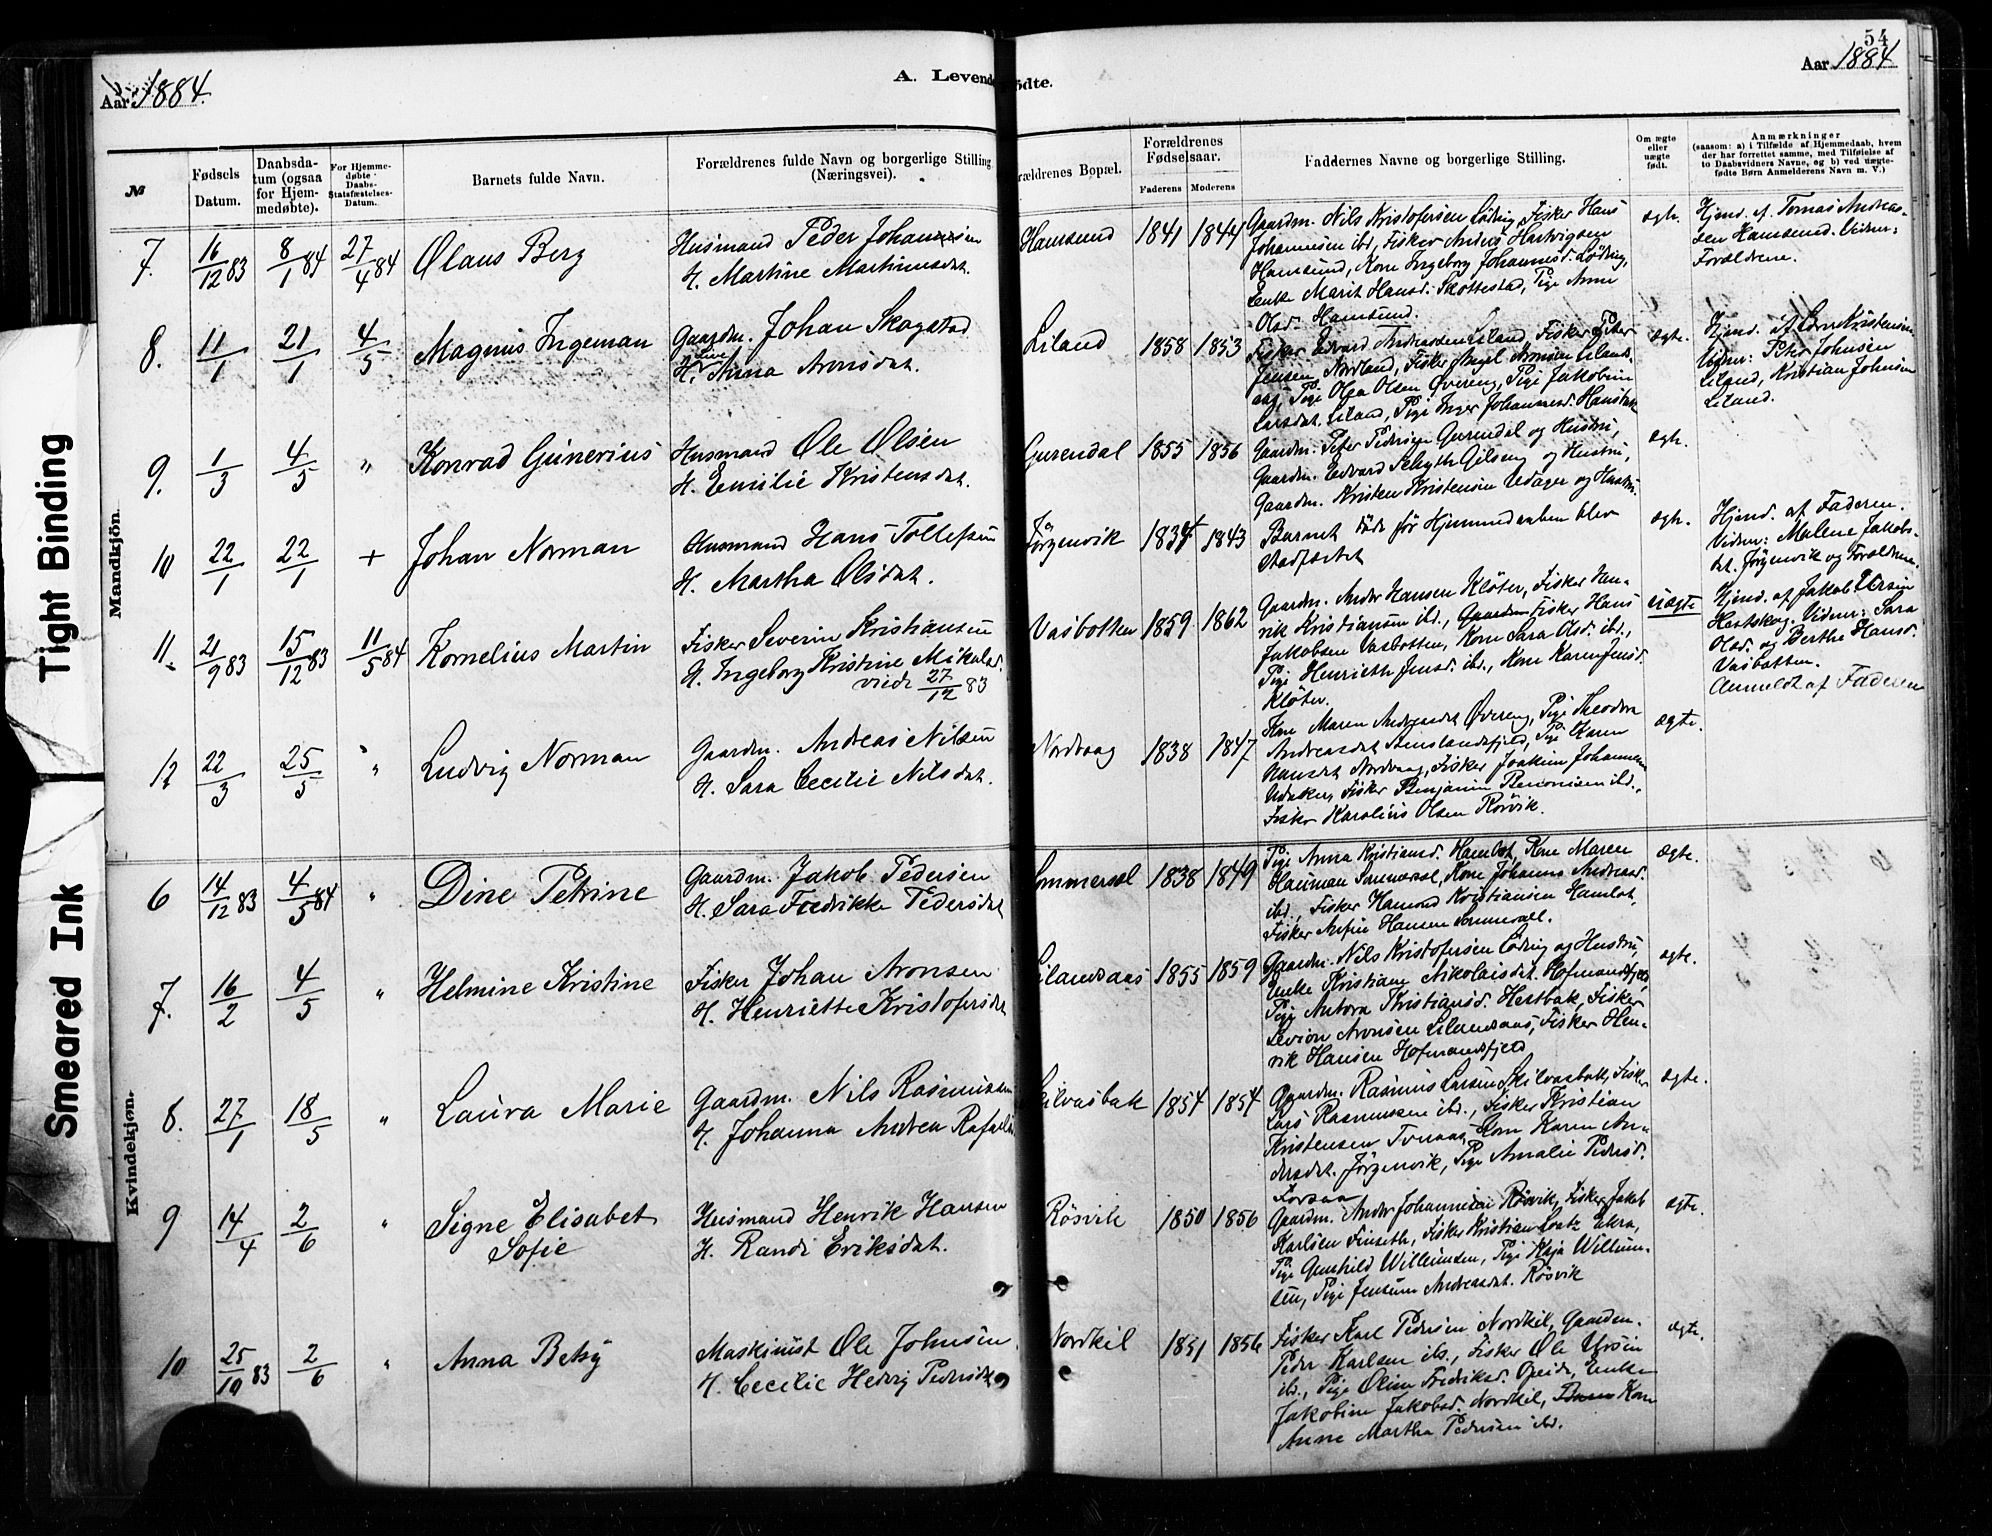 Tight Binding
Smeared Ink
Aar 1884.
A. Levende
ödte.
54
Aar 1884
Mandkjön.
Kvindekjøn.
№
Fødsels Datum.
Daabsda-
tum (ogsaa
for Hjem-
medøbte).
For Hjemme-
døbte
Daabs-
Statsfæstelses-
Datum.
Barnets fulde Navn.
Forældrenes fulde Navn og borgerlige Stilling
(Næringsvei).
rældrenes Bopæl.
Forældrenes
Fødselsaar.
Faderens
Moderens
Faddernes Navne og borgerlige Stilling.
Om ægte
eller
uægte
født.
Anmærkninger
(saasom: a) i Tilfælde af Hjemmedaab, hvem
der har forrettet samme, med Tilføielse af
Daabsvidners Navne, og b) ved uægte-
fødte Børn Anmelderens Navn m. V.)
7. 16/12 83 8/1 84 27/4 84 Olaus Berg
Husmand Peder Johansen
H. Martine Martinusdat.
Hamsund 1841 1844
Gaardm. Nils Kristofersen Löding, Fisker Hans
Johannesen ibd., Fisker Andreas Hartvigsen
Hamsund, Kone Ingeborg Johannesd. Löding,
Enke Marit Hansd. Skottestad, Pige Anne
Olsd. Hamsund.
ægte.
Hjemd. af Tomas Andrea-
sen Hamsund. Vidner:
Forældrene.
8. 11/1 21/1 4/5 Magnus Ingeman
Gaardm. Johan Skogstad
H. Anna Aronsdat.
Liland 1858 1853
Fisker Edvard Andreassen Liland, Fisker Peter
Jensen Nordland, Fisker Aronsen Lilands-
aas, Pige Olga Olsen Øvereng, Pige Jakobine
Larsdat. Liland, Pige Inger Johannesd. Hamsund
ægte.
Hjemd. af Kristensen
Vidner: Peter Johnsen
Liland, Kristian Johnsen
Liland.
9. 1/3 4/5 " Konrad Gunerius
Husmand Ole Olsen
H. Emilie Kristensdat.
Gurendal 1855 1856
Gaardm. Peter Pedersen Gurendal og Hustru,
Gaardm. Edvard Schytte Gilseng og Hustru,
Gaardm. Kristen Kristensen Udager og Hustru.
ægte.
10 22/1 22/1 + Johan Norman
Husmand Hans Tollefsen
H. Martha Olsdat.
Jørgenvik 1834 1843
Barnet døde før Hjemmedaaben blev
stadfæstet
ægte.
Hjemd. af Faderen.
Vidner: Malene Jakobs-
dat. Jørgenvik og Forældrene.
11. 21/9 83 15/12 83 11/5 84 Kornelius Martin
Fisker Severin Kristiansen
H. Ingeborg Kristine Mikalsd.
viede 27/12 83
Vasbotten 1859 1862
Gaardm. Anders Hansen Kløter, Fisker Hen-
rik Kristiansen ibd., Gaardm. Fisker Hans
Jakobsen Vasbotten, Kone Sara Olsd. ibd.,
Pige Henriette Jensd. ibd., Kone Karen Jensd.
Kløter.
uægte
Hjemd. af Jakob
Hestskog. Vidner: Sara
Olsd. og Berthe Hansd.
Vasbotten.
Anmeldt af Faderen
12 22/3 25/5 " Ludvig Norman
Gaardm. Andreas Nilsen
H. Sara Cecilie Nilsdat.
Nordvaag 1838 1847
Kone Maren Andreasdat Øvereng, Pige Theodora
Andreasdat Stenslandsfjeld, Pige Karen
Hansdat Nordvaag, Fisker Joakim Johannesen
Udaker, Fisker Benjamin Benonisen ibd.,
Fisker Karolius Olsen Rörvik.
ægte.
6 14/12 83 4/5 84 " Dine Petrine
Gaardm. Jakob Pedersen
H. Sara Fredrikke Pedersdat
Sommersel 1838 1849
Pige Anna Kristiansd. Hamlot, Kone Maren
Hanman Sommersel, Kone Johanna Andreasd.
ibd., Fisker Hamond Kristiansen Hamlot,
Fisker Arfin Hansen Sommersel.
ægte.
7. 16/2 4/5 " Helmine Kristine
Fisker Johan Aronsen
H. Henriette Kristofersdat
Lilandsaas 1855 1859
Gaardm. Nils Kristofersen Löding og Hustru,
Enke Kristiane Nikolaisdat. Hofmandsfjeld,
Pige Antora Kristiansd. Hestbak, Fisker
Levion Aronsen Lilandsaas, Fisker Hen-
rik Hansen Hofmandsfjeld
ægte.
8. 27/1 18/5 " Laura Marie
Gaardm. Nils Rasmussen
H. Johanna Andrea Rafaels
Skilvasbak 1854 1854
Gaardm. Rasmus Larsen Skilvasbak, Fisker
Lars Rasmussen ibd., Fisker Kristian
Kristensen Toraas, Kone Karen An-
dersdat. Jørgenvik, Pige Amalie Pedersd.
Forsaa
ægte.
9 14/4 2/6 " Signe Elisabet
Sofie
Husmand Henrik Hansen
H. Randi Eriksdat.
Røsvik 1850 1856
Gaardm. Anders Johannesen Røsvik, Fisker Jakob
Karlsen Finseth, Fisker Kristian Ekra,
Pige Gunhild Willumsen, Pige Kaja Willum-
sen, Pige Jensine Andreasdat. Røsvik
ægte.
10 25/10 83 2/6 " Anna Betsy
Maskinist Ole Johnsen
H. Cecilie Hedvig Pedersdat
Nordkil 1851 1856
Fisker Karl Pedersen Nordkil, Gaardm.
Peder Karlsen ibd., Fisker Ole
ibd., Pige Oline Fredriksd. Opeide, Enke
Jakobine Jakobsd. Nordkil, Kone
Anne Martha Pedersen ibd.
ægte.